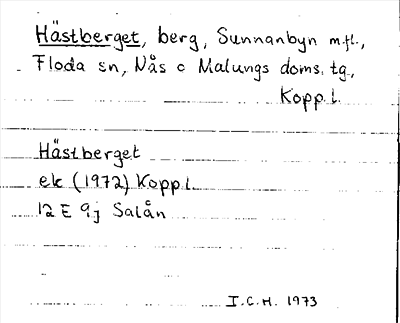 Hästberget, berg, Sunnanbyn m.fl.,
Floda sn, Nås o Malungs doms. tg.,
Kopp.l.
Hästberget
ek (1972) Kopp.l.
12 E 9j Salån
I.C.H. 1973